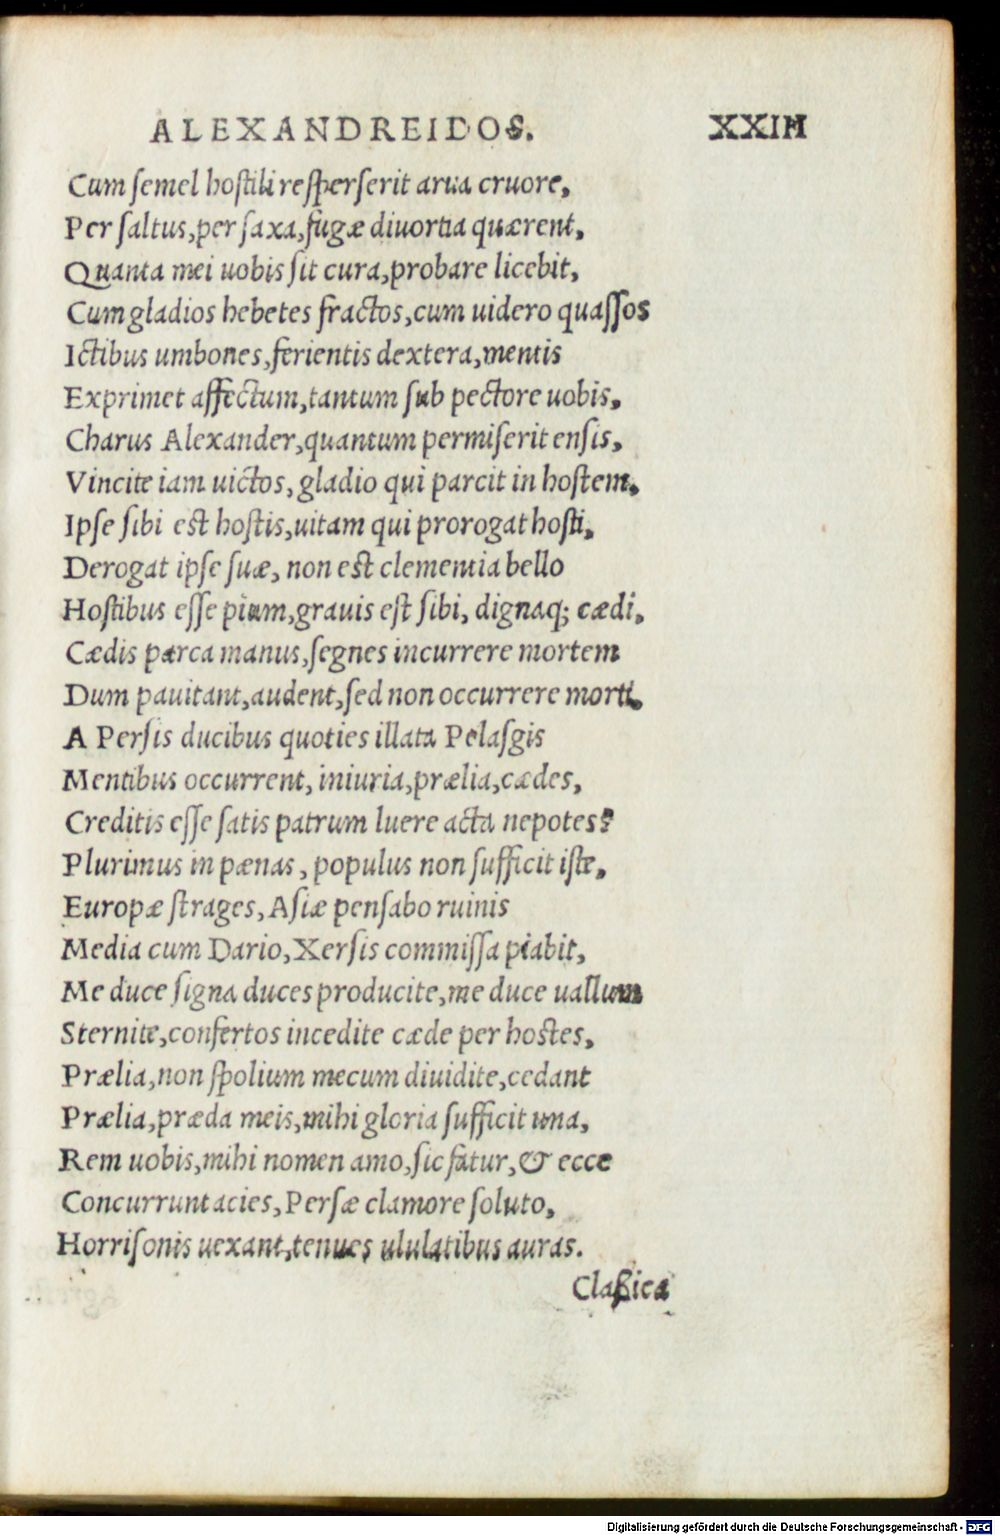 ALEXANDREIDOS. XXIII
Cum ſemel hoſtili reſperſerit arua cruore,
Per ſaltus,per ſaxa,fugæ diuortia quærent,
Quanta mei uobis ſit cura,probare licebit,
Cum gladios hebetes fractos,cum uidero quaſſos
Ictibus umbones,ferientis dextera,mentis
Exprimet affectum,tantum ſub pectore uobis,
Charus Alexander,quantum permiſerit enſis,
Vincite iam uictos,gladio qui parcit in hoſtem,
Ipſe ſibi eſt hoſtis,uitam qui prorogat hoſti,
Derogat ipſe ſuæ, non eſt clementia bello
Hoſtibus eſſe pium,grauis eſt ſibi, dignaq; cædi,
Cædis parca manus,ſegnes incurrere mortem
Dum pauitant,audent,ſed non occurrere morti,
A Perſis ducibus quoties illata Pelaſgis
Mentibus occurrent, iniuria,prælia,cædes,
Creditis eſſe ſatis patrum luere acta nepotes?
Plurimus in pænas, populus non ſufficit iſte,
Europæ ſtrages, Aſiæ penſabo ruinis
Media cum Dario, Xerſis commiſſa piabit,
Me duce ſigna duces producite,me duce uallum
Sternite,confertos incedite cæde per hoſtes,
Prælia,non ſpolium mecum diuidite,cedant
Prælia,præda meis,mihi gloria ſufficit una,
Rem uobis,mihi nomen amo,ſic fatur,& ecce
Concurrunt acies, Perſæ clamore ſoluto,
Horriſonis uexant,tenues ululatibus auras.
Claßica
Digitalisierung gefördert durch die Deutsche Forschungsgemeinschaft - DFG